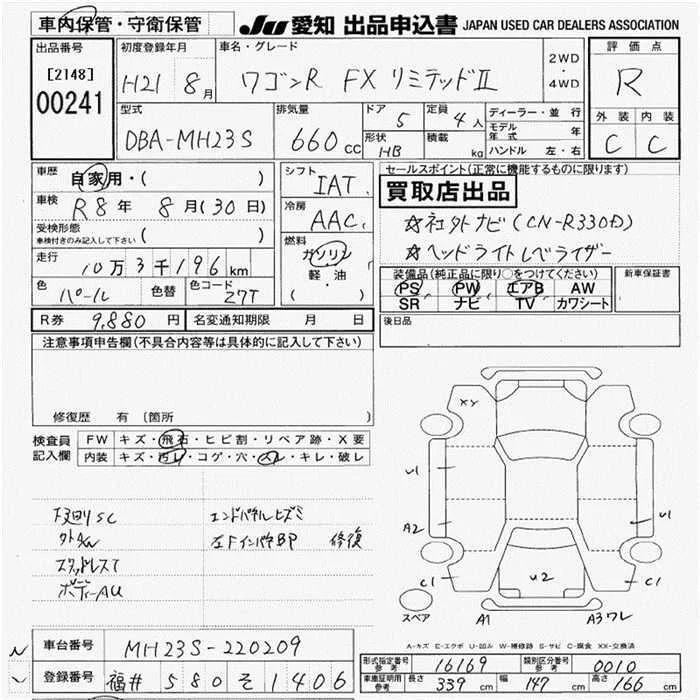 車内保管・守衛保管
JU 愛知 出品申込書 JAPAN USED CAR DEALERS ASSOCIATION
出品番号 [2148] 00241
初度登録年月 H21 8月
車名・グレード ワゴンR FX リミテッドⅡ
2WD・4WD
評価点 R
外装 内装
C C
型式 DBA-MH23S
排気量 660 cc
ドア 5
定員 4人
形状 HB
積載 kg
ディーラー・並行
モデル年式 年
ハンドル 左・右
車歴 自家用・( )
車検 R8年 8月(30日)
受検形態 ( )
車検付きのみ記入して下さい
走行 10万3千196km
色 パール 色替 色コード Z7T
シフト IAT
冷房 AAC
燃料 ガソリン 軽油 ( ・ )
セールスポイント(正常に機能するものに限ります)
買取店出品
☆社外ナビ(CN-R330D)
☆ヘッドライトレベライザー
装備品(純正品に限り○をつけてください)
PS PW エアB AW
SR ナビ TV カワシート
新車保証書
R券 9,880円 名変通知期限 月 日
後日品
注意事項申告欄(不具合内容等は具体的に記入して下さい)
修復歴 有 (箇所
検査員記入欄
FW キズ・飛石・ヒビ割・リペア跡・X要
内装 キズ・汚レ・コゲ・穴・スレ・キレ・破レ
下廻りSC
外
スタッドレスT
ボディーAU
エンドパネルヒズミ
左Fインパネ部P 修復
XY
U1
A2
C1
U2
U1
C1
スペア
A1
A3ワレ
A-キズ E-エクボ U-凹み W-補修跡 S-サビ C-腐食 XX-交換済
車台番号 MH23S-220209
登録番号 福井 580 そ 1406
形式指定番号 参考 16169 類別区分番号 参考 0010
車庫証明用 参考 長さ 339cm 幅 147cm 高さ 166cm